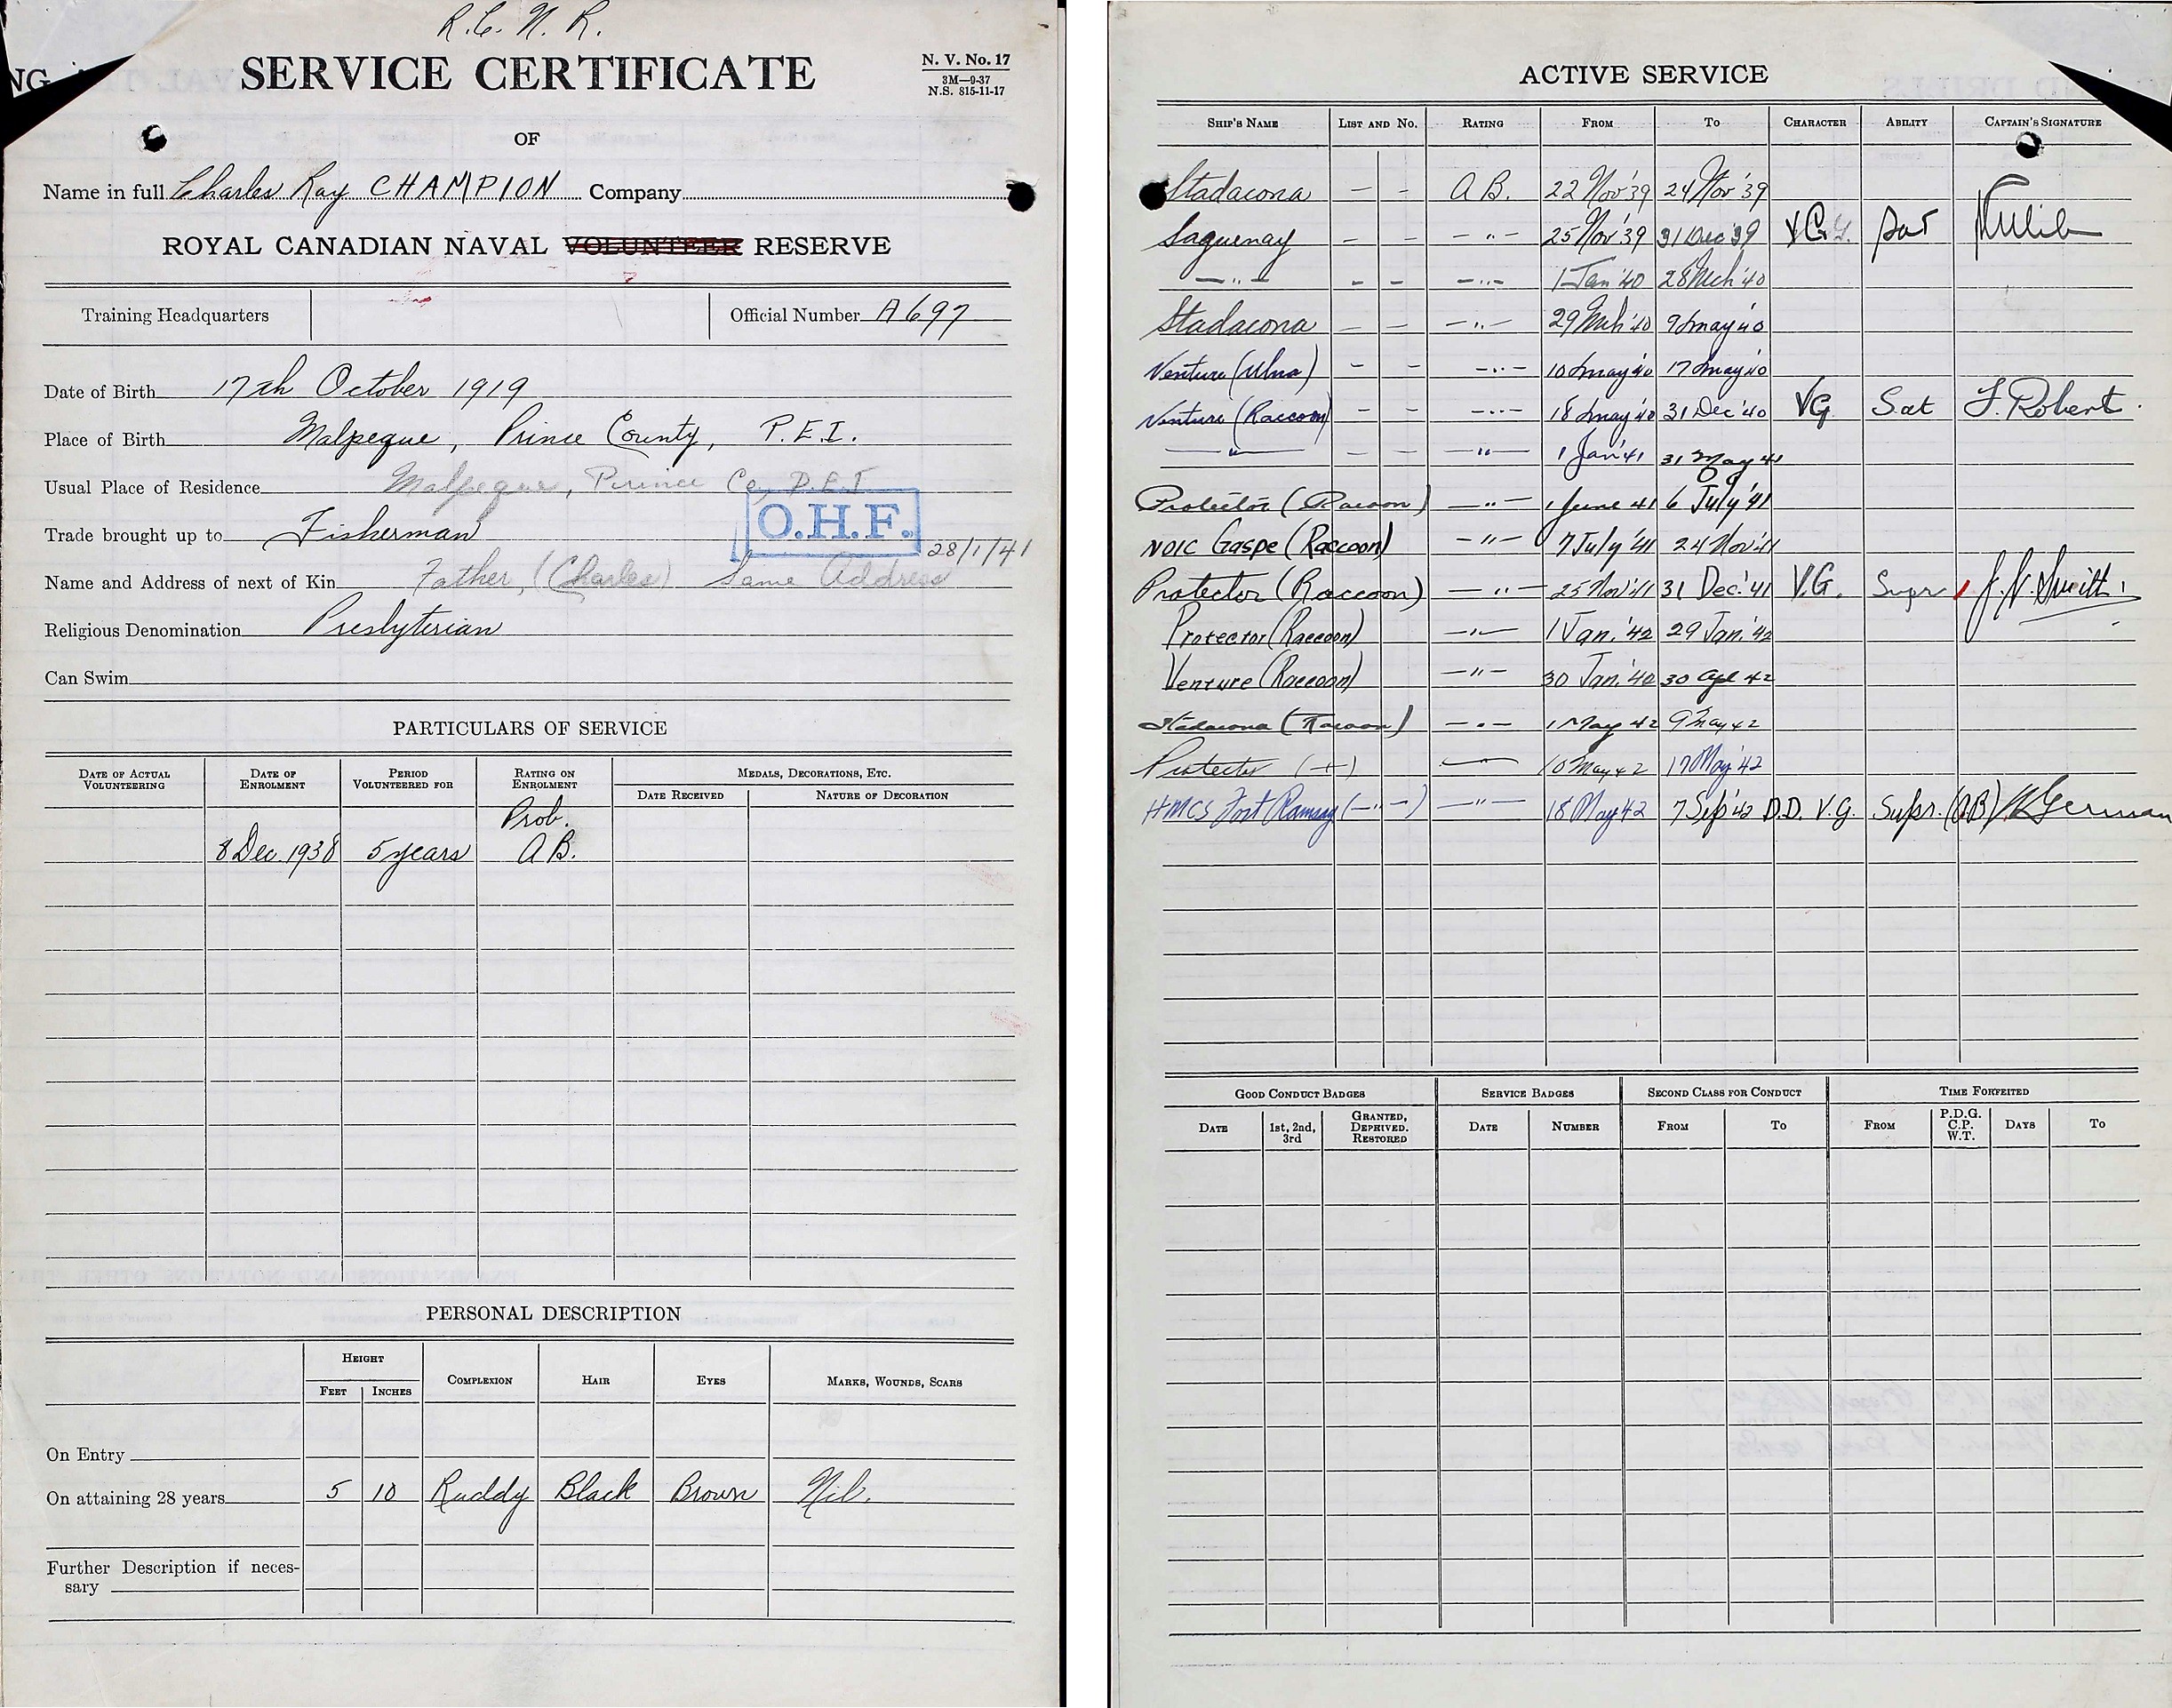 R.C.N.R.
SERVICE CERTIFICATE
N. V. No. 17
3M—9-37
N.S. 815-11-17
OF
Name in full Charles Ray CHAMPION Company
ROYAL CANADIAN NAVAL VOLUNTEER RESERVE
Training Headquarters Official Number A697
Date of Birth 17th October 1919
Place of Birth Malpeque, Prince County, P.E.I.
Usual Place of Residence Malpeque, Prince Co, P.E.I.
O.H.F.
Trade brought up to Fisherman
28/1/41
Name and Address of next of Kin Father, (Charles) Same Address
Religious Denomination Presbyterian
Can Swim
PARTICULARS OF SERVICE
DATE OF ACTUAL VOLUNTEERING DATE OF ENROLMENT PERIOD VOLUNTEERED FOR RATING ON ENROLMENT MEDALS, DECORATIONS, ETC.
DATE RECEIVED NATURE OF DECORATION
Prob.
8 Dec 1938 5 years A B.
PERSONAL DESCRIPTION
HEIGHT
FEET INCHES COMPLEXION HAIR EYES MARKS, WOUNDS, SCARS
On Entry
On attaining 28 years 5 10 Ruddy Black Brown Nil.
Further Description if neces-
sary
ACTIVE SERVICE
SHIP'S NAME LIST AND NO. RATING FROM TO CHARACTER ABILITY CAPTAIN'S SIGNATURE
Stadacona — - A B. 22 Nov'39 24 Nov'39
Saguenay — — - " - 25 Nov'39 31 Dec'39 V.G. Sat
— " — — — — " - 1 Jan'40 28 Mch'40
Stadacona — — — " — 29 Mch'40 9 May'40
Venture (Ulna) — - — " — 10 May'40 17 May'40
Venture (Raccoon) — — — " — 18 May'40 31 Dec'40 VG Sat F. Robert.
— " — — — — " — 1 Jan'41 31 May 41
Protector (Racoon) — " — 1 June 41 6 July'41
NOIC Gaspe (Raccoon) — " — 7 July'41 24 Nov'41
Protector (Raccoon) — " — 25 Nov'41 31 Dec.'41 V.G. Supr J. N. Smith
Protector (Raccoon) — " — 1 Jan.'42 29 Jan.'42
Venture (Raccoon) — " — 30 Jan.'42 30 Apl 42
Stadacona (Racoon) — " — 1 May 42 9 May 42
Protector ( — " — ) — " — 10 May 42 17 May'42
HMCS Fort Ramsay ( — " — ) — " — 18 May 42 7 Sep'42 D.D. V.G. Supr. (AB) German
GOOD CONDUCT BADGES SERVICE BADGES SECOND CLASS FOR CONDUCT TIME FORFEITED
DATE 1st, 2nd, 3rd GRANTED, DEPRIVED. RESTORED DATE NUMBER FROM TO FROM P.D.G. C.P. W.T. DAYS TO